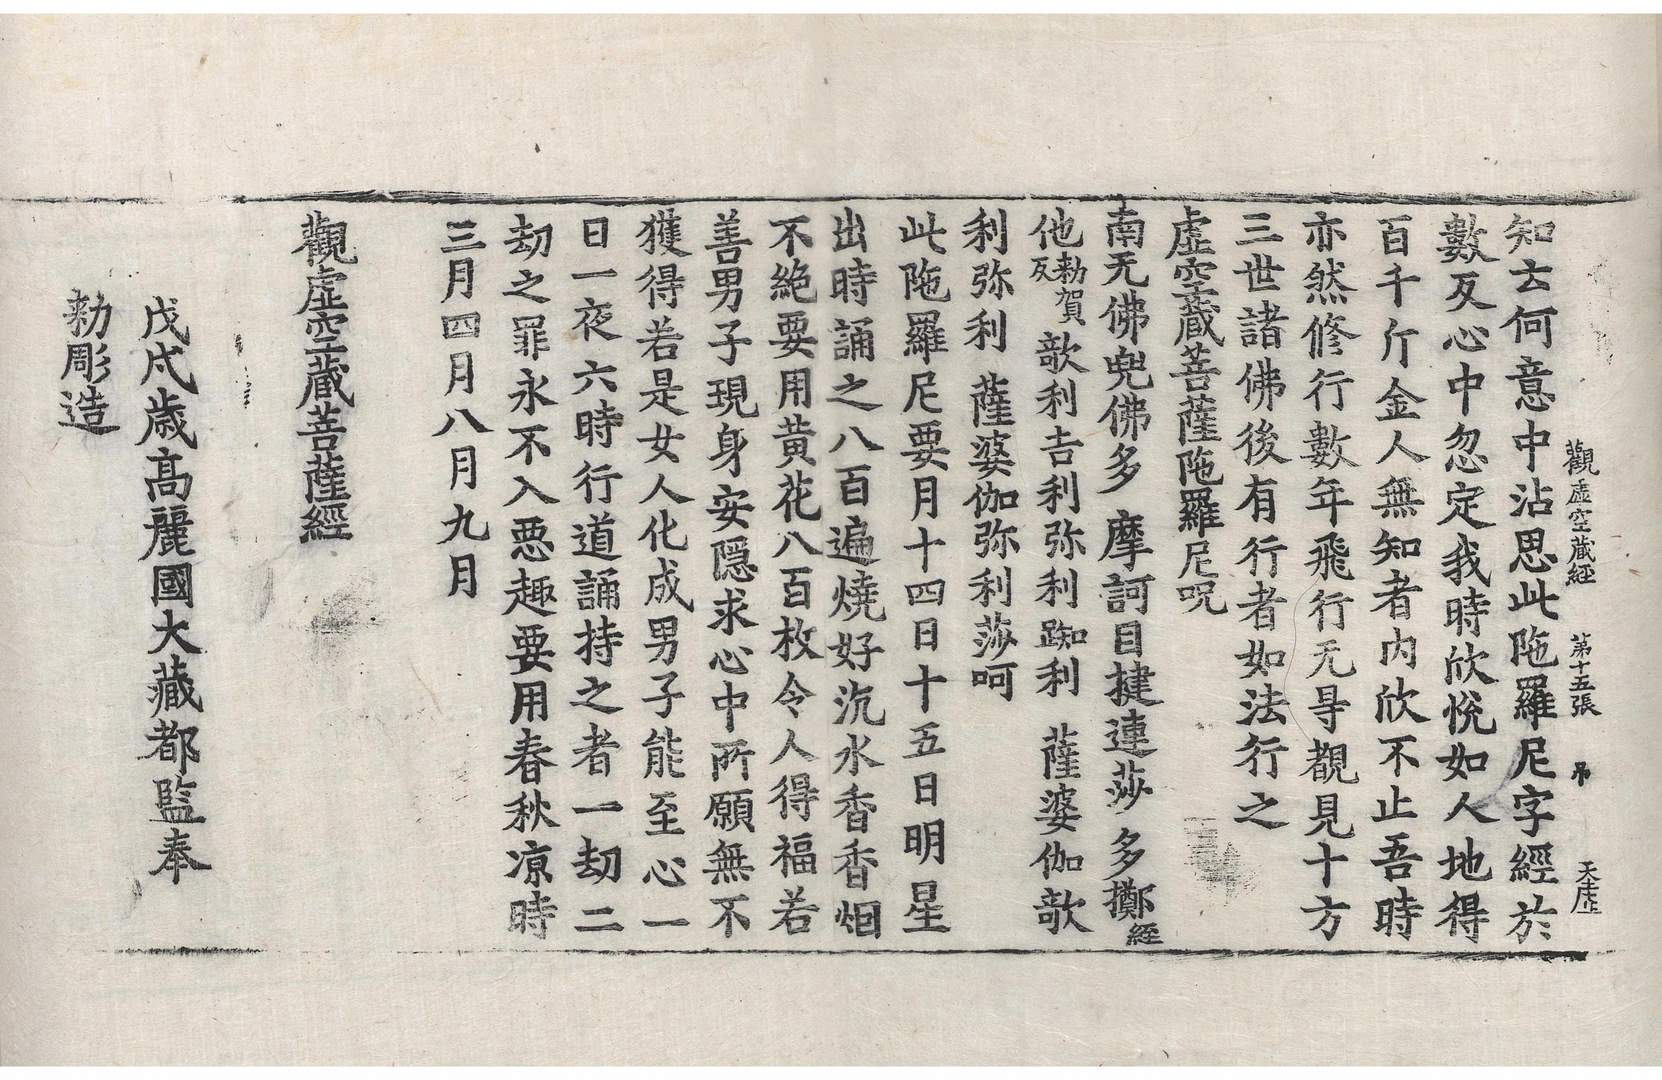 觀虛空藏經 第十五張 吊 天虛
知云何意中沾思此陁羅尼字經於
數反心中忽定我時欣悅如人地得
百千斤金人無知者內欣不止吾時
亦然修行數年飛行无㝵觀見十方
三世諸佛後有行者如法行之
虛空藏菩薩陁羅尼呪
南无佛兜佛多 摩訶目揵連莎多擲經
他勑賀反 歆利吉利弥利踟利 薩婆伽歆
利弥利 薩婆伽弥利莎呵
此陁羅尼要月十四日十五日明星
出時誦之八百遍燒好沉水香香烟
不絶要用黄花八百枚令人得福若
善男子現身安隱求心中所願無不
獲得若是女人化成男子能至心一
日一夜六時行道誦持之者一劫二
劫之罪永不入惡趣要用春秋凉時
三月四月八月九月
觀虛空藏菩薩經
戊戌歲高麗國大藏都監奉
勑彫造